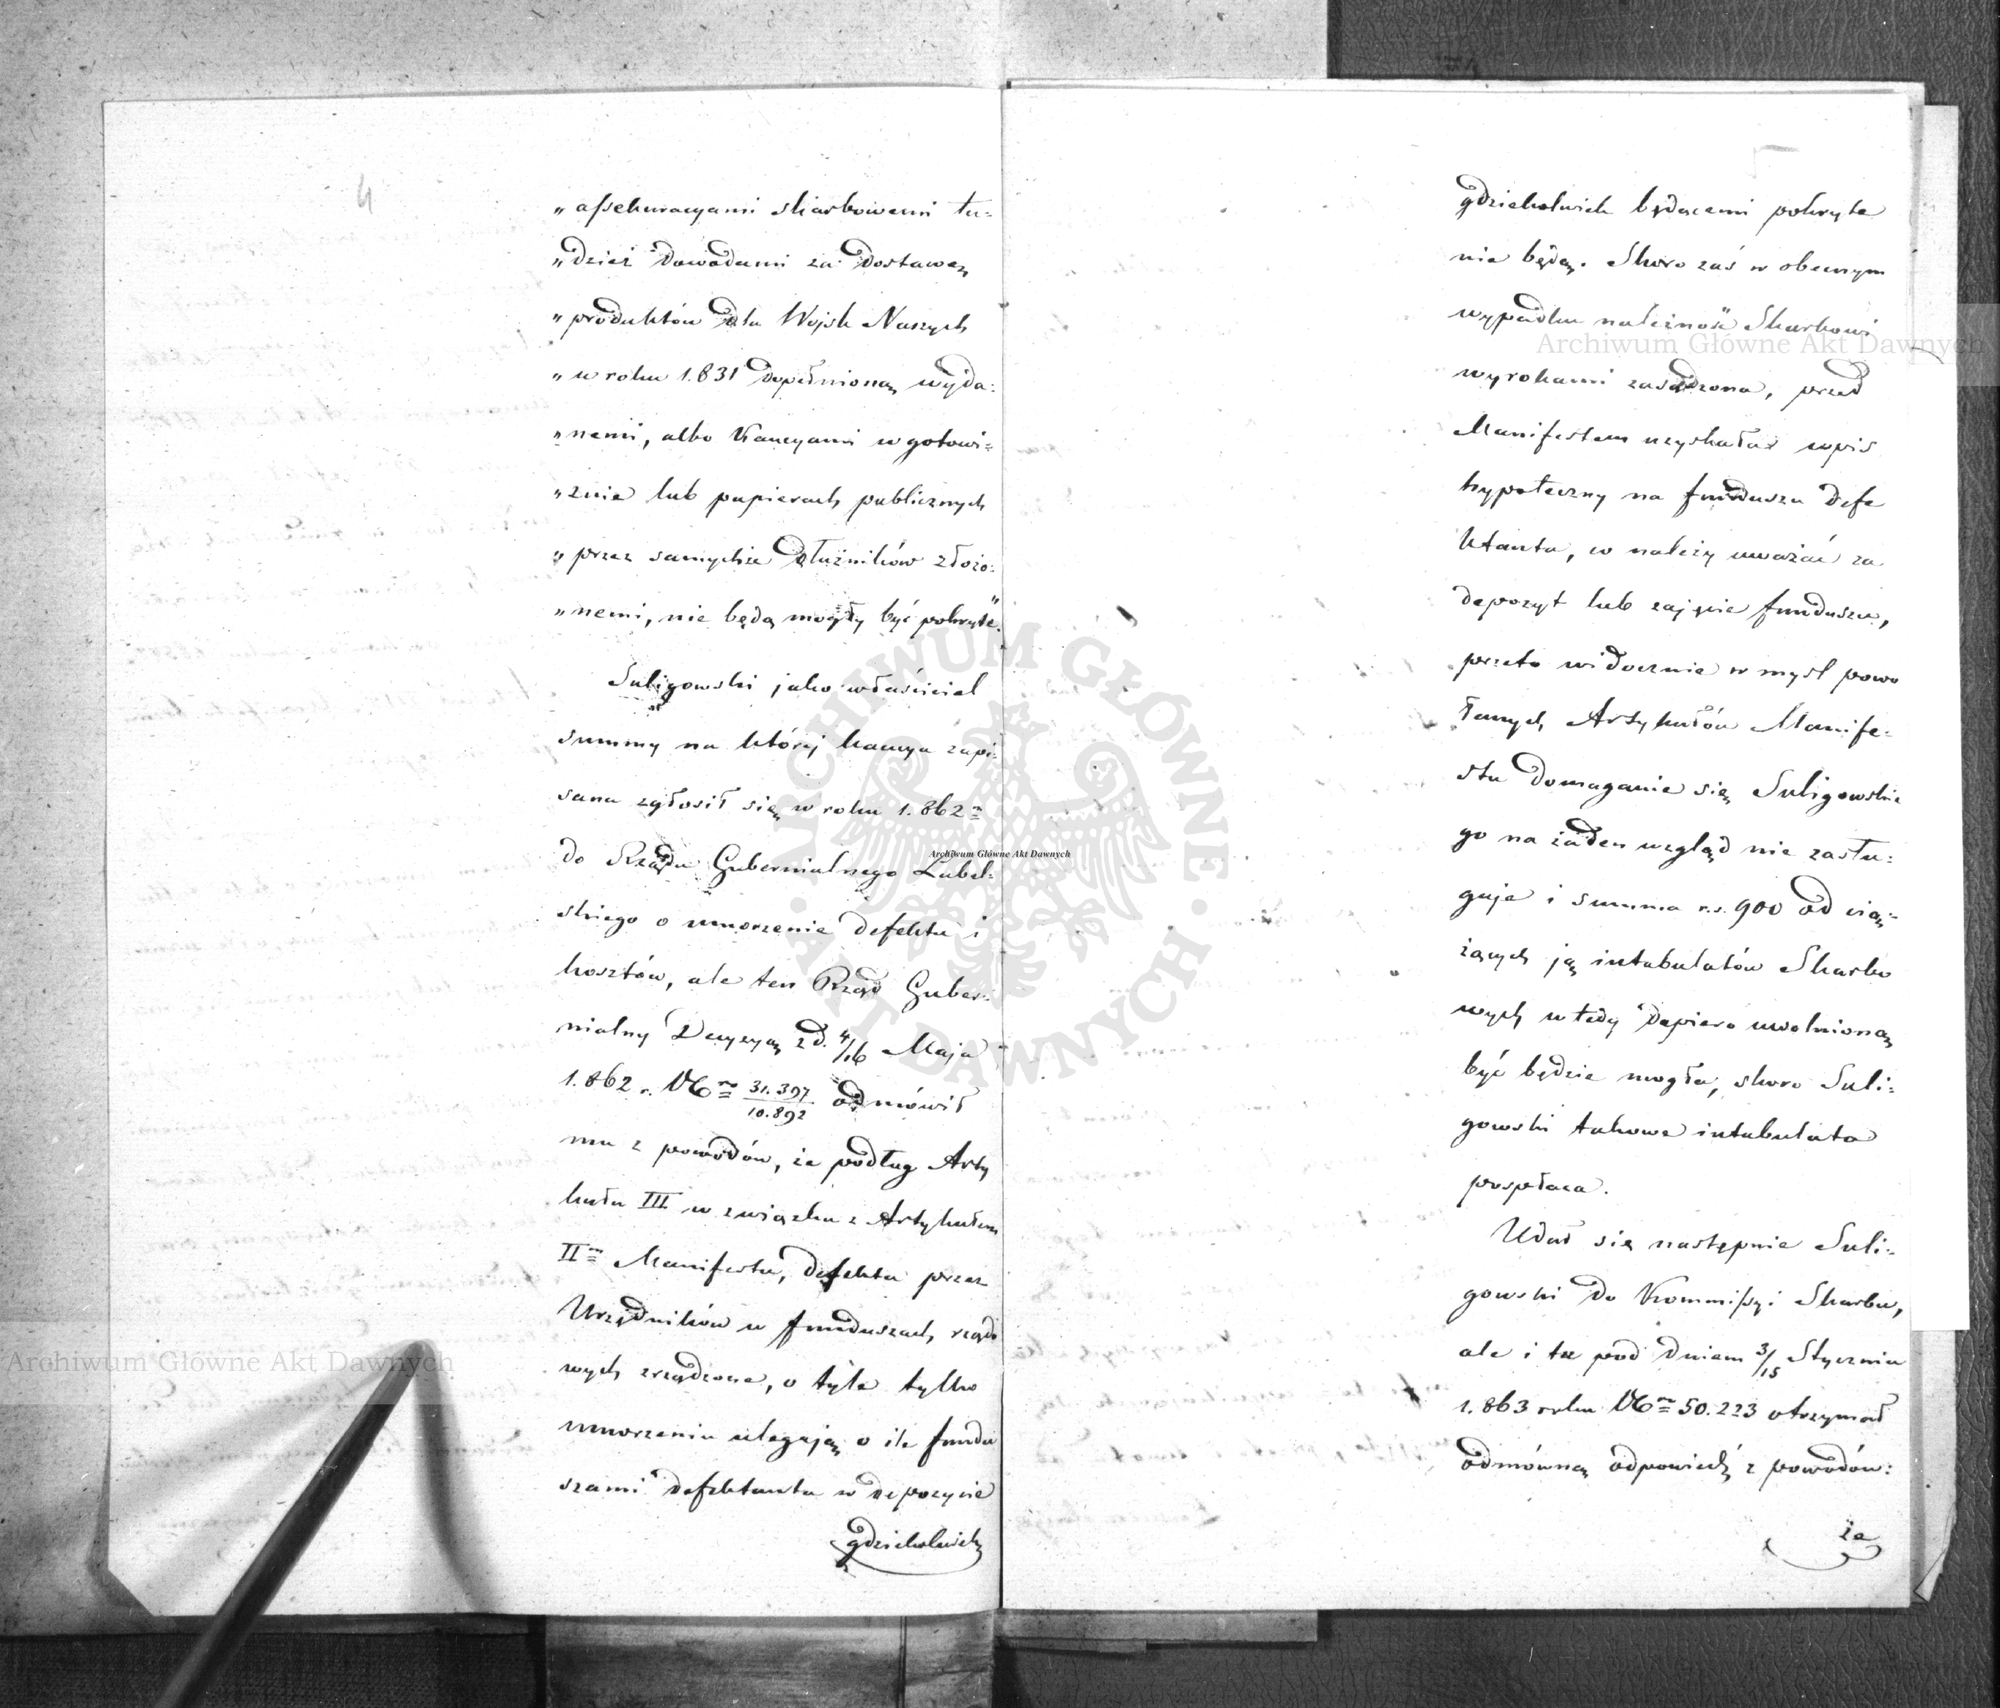 4
„ assekuracyami skarbowemi tu-
„ dzież dowodami za dostawę
„ produktów dla Wojsk Naszych
„ w roku 1.831 dopełnioną wyda-
„ nemi, albo Kaucyami w gotowi-
„ znie lub papierach publicznych
„ przez samychże dłużników złożo-
„ nemi, nie będą mogły być pokryte."
Suligowski jako właściciel
summy na której kaucya zapi-
sana zgłosił się w roku 1.862 m
do Rządu Gubernialnego Lubel-
skiego o umorzenie defektu i
kosztów, ale ten Rząd Guber-
nialny Decyzyą z d. 4/16 Maja
1.862 r. No 31.397/10.892 odmówił
mu z powodów, że podług Arty
kułu III w związku z Artykułem
II m Manifestu, defekta przez
Urzędników w funduszach rządo
wych zrządzone, o tyle tylko
umorzeniu ulegają o ile fundu
szami defektanta w depozycie
gdziekolwiek
gdziekolwiek będącemi pokryte
nie będą. Skoro zaś w obecnym
wypadku należność Skarbowi
wyrokami zasądzona, przed
Manifestem uzyskałaś wpis
hypoteczny na funduszu defe
ktanta, co należy uważać za
depozyt lub zajęcie funduszu,
przeto widocznie w myśl powo
łanych Artykułów Manife-
stu domaganie się Suligowskie
go na żaden wzgląd nie zasłu-
guje i summa r.s. 900 od cią-
żących ją intabulatów Skarbo
wych wtedy dopiero uwolnioną
być będzie mogła, skoro Suli-
gowski takowe intabulata
pospłaca.
Udał się następnie Suli-
gowski do Kommissyi Skarbu,
ale i tu pod dniem 3/15 Stycznia
1.863 roku No 50.223 otrzymał
odmówną odpowiedź z powodów:
że
Archiwum Główne Akt Dawnych
Archiwum Główne Akt Dawnych
Archiwum Główne Akt Dawnych
ARCHIWUM GŁÓWNE AKT DAWNYCH